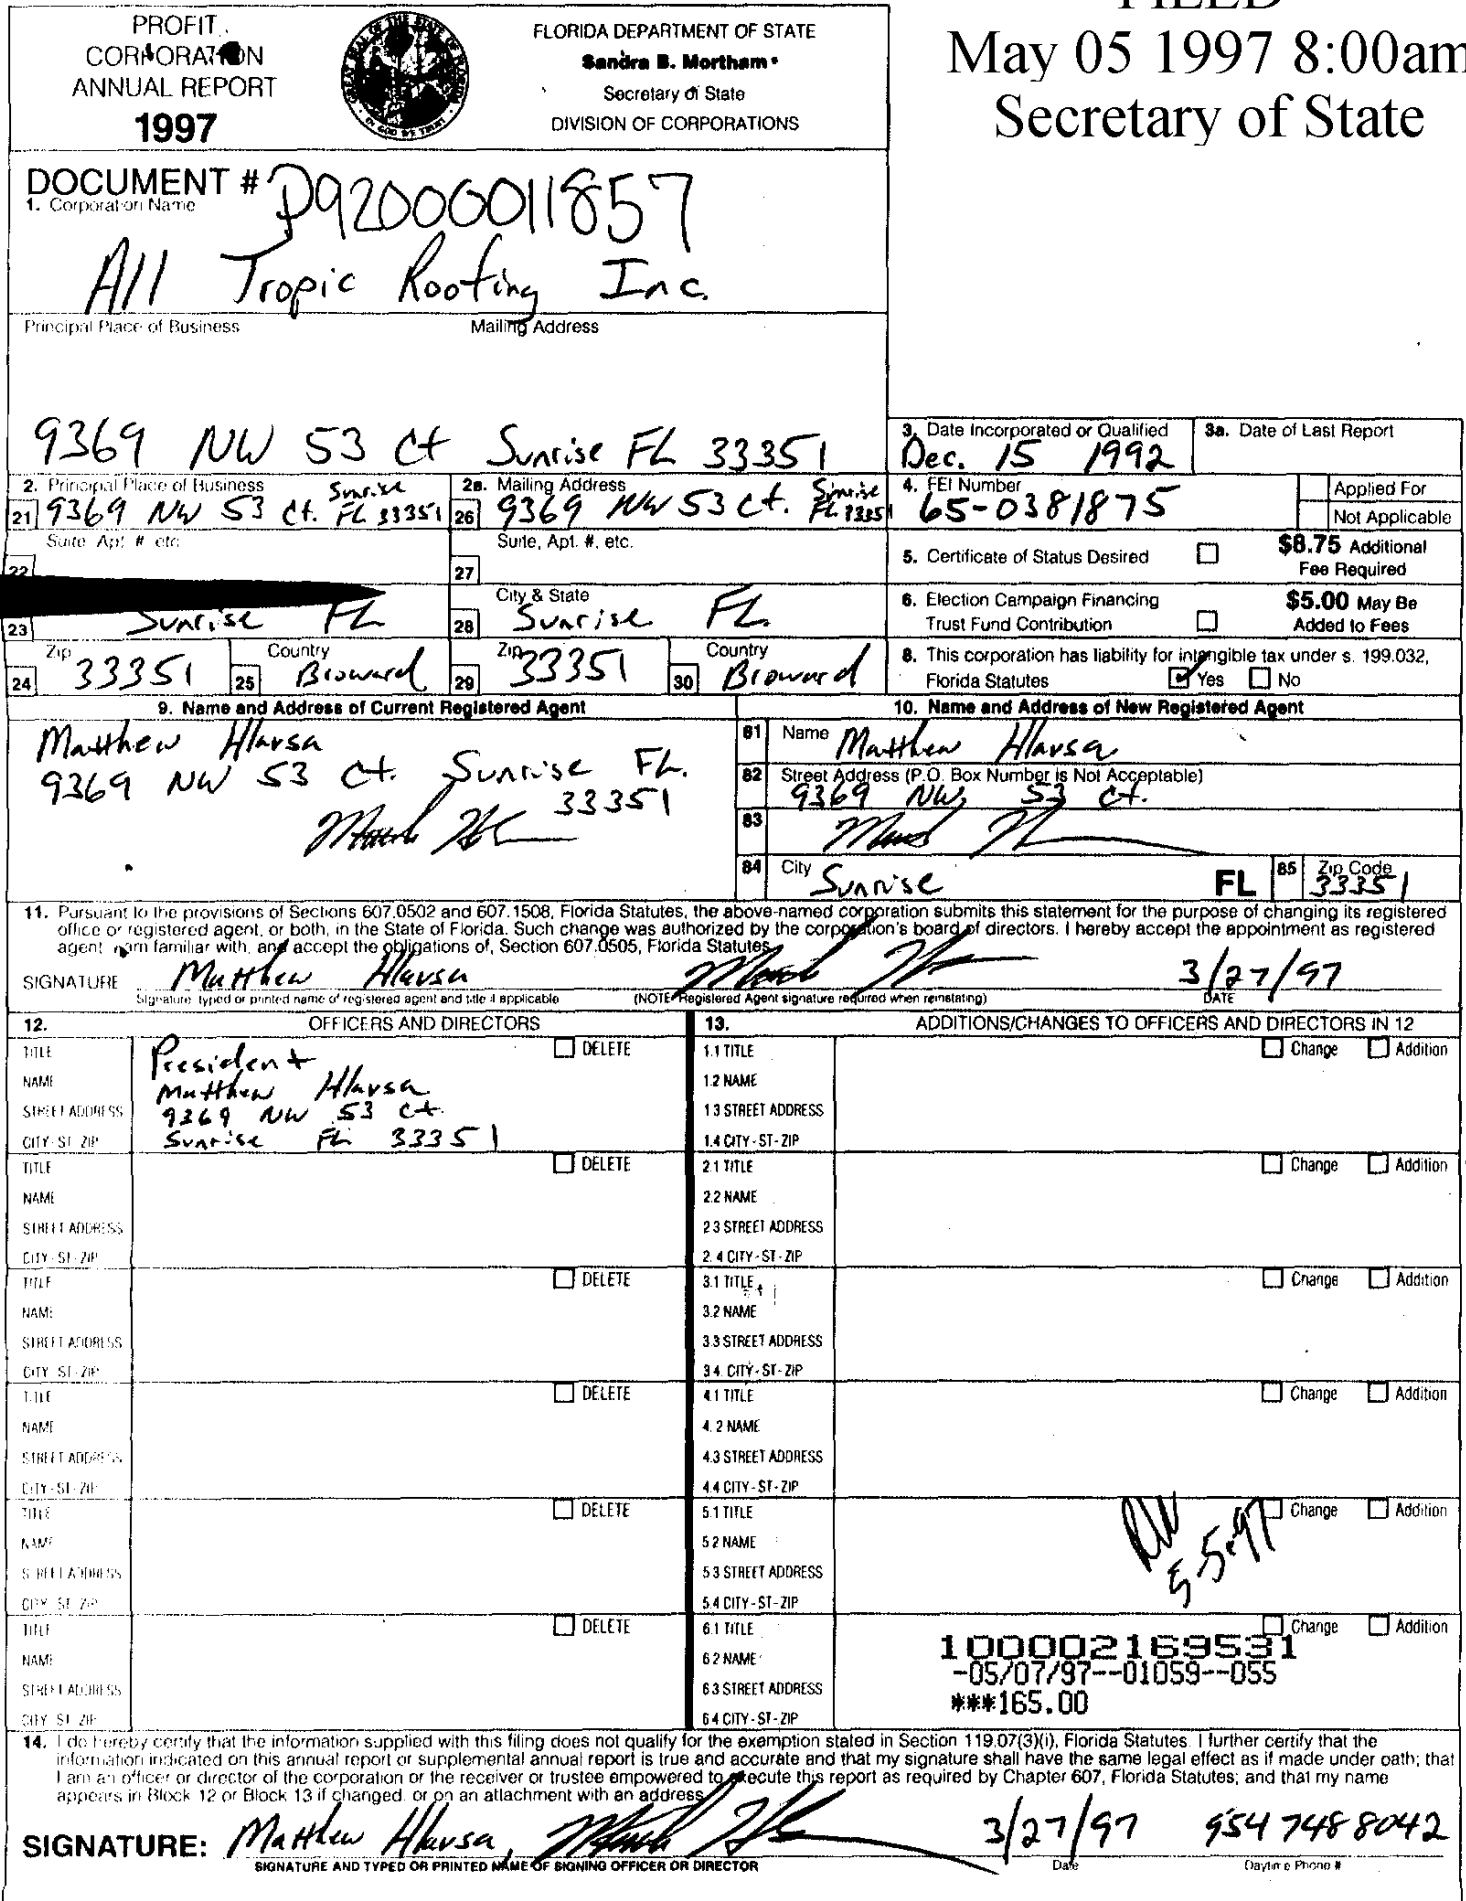 PROFIT
CORPORATION
ANNUAL REPORT
1997
FLORIDA DEPARTMENT OF STATE
Sandra B. Mortham
Secretary of State
DIVISION OF CORPORATIONS
FILED
May 05 1997 8:00am
Secretary of State
DOCUMENT # P92000011857
1. Corporation Name
All Tropic Roofing Inc.
Principal Place of Business Mailing Address
9369 NW 53 Ct Sunrise FL 33351
3. Date Incorporated or Qualified
Dec. 15 1992
3a. Date of Last Report
2. Principal Place of Business
21 9369 NW 53 Ct. Sunrise FL 33351
2a. Mailing Address
26 9369 NW 53 Ct. Sunrise FL 33351
4. FEI Number
65-0381875
Applied For
Not Applicable
Suite, Apt. #, etc.
22
Suite, Apt. #, etc.
27
5. Certificate of Status Desired
$8.75 Additional
Fee Required
23 Sunrise FL
City & State
28 Sunrise FL.
6. Election Campaign Financing
Trust Fund Contribution
$5.00 May Be
Added to Fees
Zip
24 33351
Country
25 Broward
Zip
29 33351
Country
30 Broward
8. This corporation has liability for intangible tax under s. 199.032,
Florida Statutes Yes No
9. Name and Address of Current Registered Agent
Matthew Hlavsa
9369 NW 53 Ct. Sunrise FL.
33351
10. Name and Address of New Registered Agent
81 Name Matthew Hlavsa
82 Street Address (P.O. Box Number is Not Acceptable)
9369 NW 53 Ct.
83
84 City Sunrise FL 85 Zip Code 33351
11. Pursuant to the provisions of Sections 607.0502 and 607.1508, Florida Statutes, the above-named corporation submits this statement for the purpose of changing its registered
office or registered agent, or both, in the State of Florida. Such change was authorized by the corporation's board of directors. I hereby accept the appointment as registered
agent. am familiar with, and accept the obligations of, Section 607.0505, Florida Statutes.
SIGNATURE Matthew Hlavsa 3/27/97
Signature, typed or printed name of registered agent and title if applicable (NOTE Registered Agent signature required when reinstating) DATE
12. OFFICERS AND DIRECTORS
13. ADDITIONS/CHANGES TO OFFICERS AND DIRECTORS IN 12
TITLE President DELETE
NAME Matthew Hlavsa
STREET ADDRESS 9369 NW 53 Ct.
CITY-ST-ZIP Sunrise FL 33351
1.1 TITLE Change Addition
1.2 NAME
1.3 STREET ADDRESS
1.4 CITY-ST-ZIP
TITLE DELETE
NAME
STREET ADDRESS
CITY-ST-ZIP
2.1 TITLE Change Addition
2.2 NAME
2.3 STREET ADDRESS
2.4 CITY-ST-ZIP
TITLE DELETE
NAME
STREET ADDRESS
CITY-ST-ZIP
3.1 TITLE Change Addition
3.2 NAME
3.3 STREET ADDRESS
3.4 CITY-ST-ZIP
TITLE DELETE
NAME
STREET ADDRESS
CITY-ST-ZIP
4.1 TITLE Change Addition
4.2 NAME
4.3 STREET ADDRESS
4.4 CITY-ST-ZIP
TITLE DELETE
NAME
STREET ADDRESS
CITY-ST-ZIP
5.1 TITLE Change Addition
5.2 NAME
5.3 STREET ADDRESS
5.4 CITY-ST-ZIP
5-5-97
TITLE DELETE
NAME
STREET ADDRESS
CITY-ST-ZIP
6.1 TITLE Change Addition
6.2 NAME
6.3 STREET ADDRESS
6.4 CITY-ST-ZIP
100002169531
-05/07/97--01059--055
***165.00
14. I do hereby certify that the information supplied with this filing does not qualify for the exemption stated in Section 119.07(3)(i), Florida Statutes. I further certify that the
information indicated on this annual report or supplemental annual report is true and accurate and that my signature shall have the same legal effect as if made under oath; that
I am an officer or director of the corporation or the receiver or trustee empowered to execute this report as required by Chapter 607, Florida Statutes; and that my name
appears in Block 12 or Block 13 if changed, or on an attachment with an address.
SIGNATURE: Matthew Hlavsa, 3/27/97 954 748 8042
SIGNATURE AND TYPED OR PRINTED NAME OF SIGNING OFFICER OR DIRECTOR Date Daytime Phone #